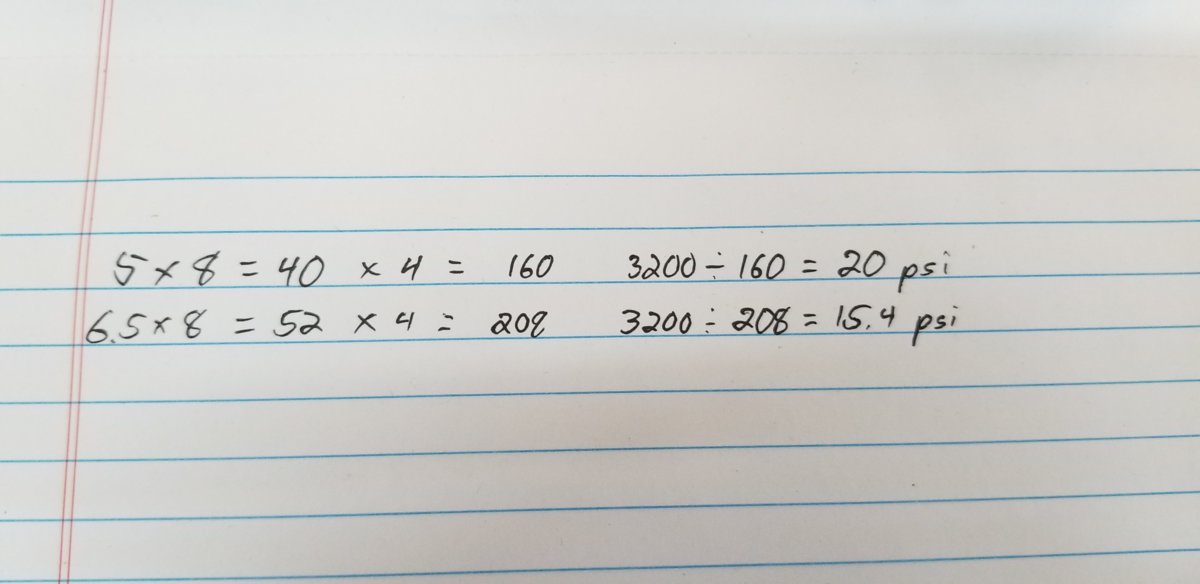 5 x 8 = 40 x 4 = 160 3200 ÷ 160 = 20 psi
6.5 x 8 = 52 x 4 = 208 3200 ÷ 208 = 15.4 psi